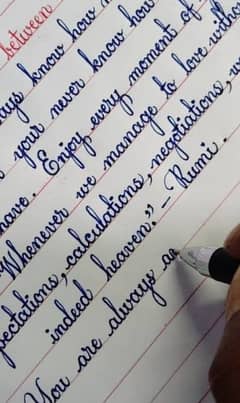 between
ays know how
your never know how
have. Enjoy every moment of
Whenever we manage to love witho
pectations, calculations, negotiations, w
indeed heaven." - Rumi.
You are always as